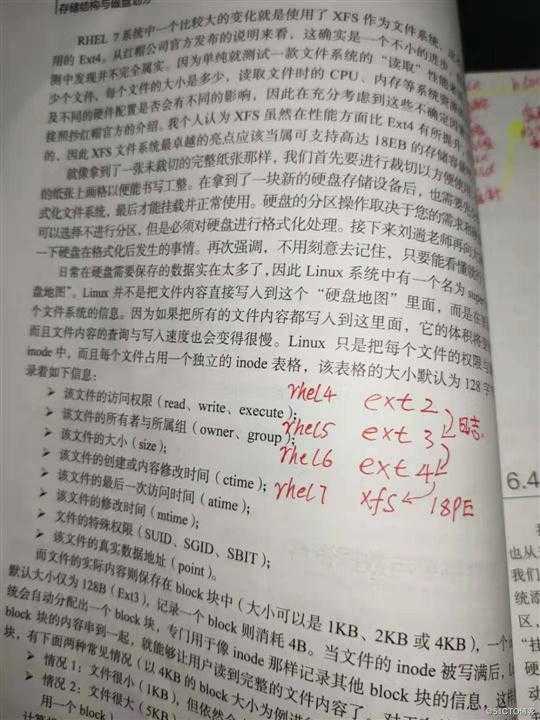 存储结构与磁盘划分
RHEL 7系统中一个比较大的变化就是使用了 XFS 作为文件系统,
用的 Ext4。从红帽公司官方发布的说明来看,这确实是一个不小的进步,
测中发现并不完全属实。因为单纯就测试一款文件系统的“读取”性能
少个文件、每个文件的大小是多少,读取文件时的 CPU、内存等系统资源
及不同的硬件配置是否会有不同的影响,因此在充分考虑到这些不确定
按照抄红帽官方的介绍。我个人认为 XFS 虽然在性能方面比 Ext4 有所提升
的,因此 XFS 文件系统最卓越的亮点应该当属可支持高达 18EB 的存储容
就像拿到了一张未裁切的完整纸张那样,我们首先要进行裁切以方便使用
的纸张上画格以便能书写工整。在拿到了一块新的硬盘存储设备后,也需要
式化文件系统,最后才能挂载并正常使用。硬盘的分区操作取决于您的需求和
可以选择不进行分区,但是必须对硬盘进行格式化处理。接下来刘遄老师再向
一下硬盘在格式化后发生的事情。再次强调,不用刻意去记住,只要能看懂
日常在硬盘需要保存的数据实在太多了,因此 Linux 系统中有一个名为 super
盘地图”。Linux 并不是把文件内容直接写入到这个“硬盘地图”里面,而是在
个文件系统的信息。因为如果把所有的文件内容都写入到这里面,它的体积将
而且文件内容的查询与写入速度也会变得很慢。Linux 只是把每个文件的权限与
inode 中,而且每个文件占用一个独立的 inode 表格,该表格的大小默认为 128 字
录着如下信息:
➢ 该文件的访问权限(read、write、execute);
➢ 该文件的所有者与所属组(owner、group);
➢ 该文件的大小(size);
➢ 该文件的创建或内容修改时间(ctime);
➢ 该文件的最后一次访问时间(atime);
➢ 该文件的修改时间(mtime);
➢ 文件的特殊权限(SUID、SGID、SBIT);
➢ 该文件的真实数据地址(point)。
而文件的实际内容则保存在 block 块中(大小可以是 1KB、2KB 或 4KB),一个
默认大小仅为 128B(Ext3),记录一个 block 则消耗 4B。当文件的 inode 被写满后,
统会自动分配出一个 block 块,专门用于像 inode 那样记录其他 block 块的信息,这样
block 块的内容串到一起,就能够让用户读到完整的文件内容了。
块,有下面两种常见情况(以 4KB 的 block 大小为例进
➢ 情况 1:文件很小(1KB),但依然会
➢ 情况 2:文件很大(5KB
用一个 block
rhel4 ext2
rhel5 ext3 日志
rhel6 ext4
rhel7 xfs ← 18PE
6.4
也从
我们
统添
区,
“挂
硬
动
51CTO博客